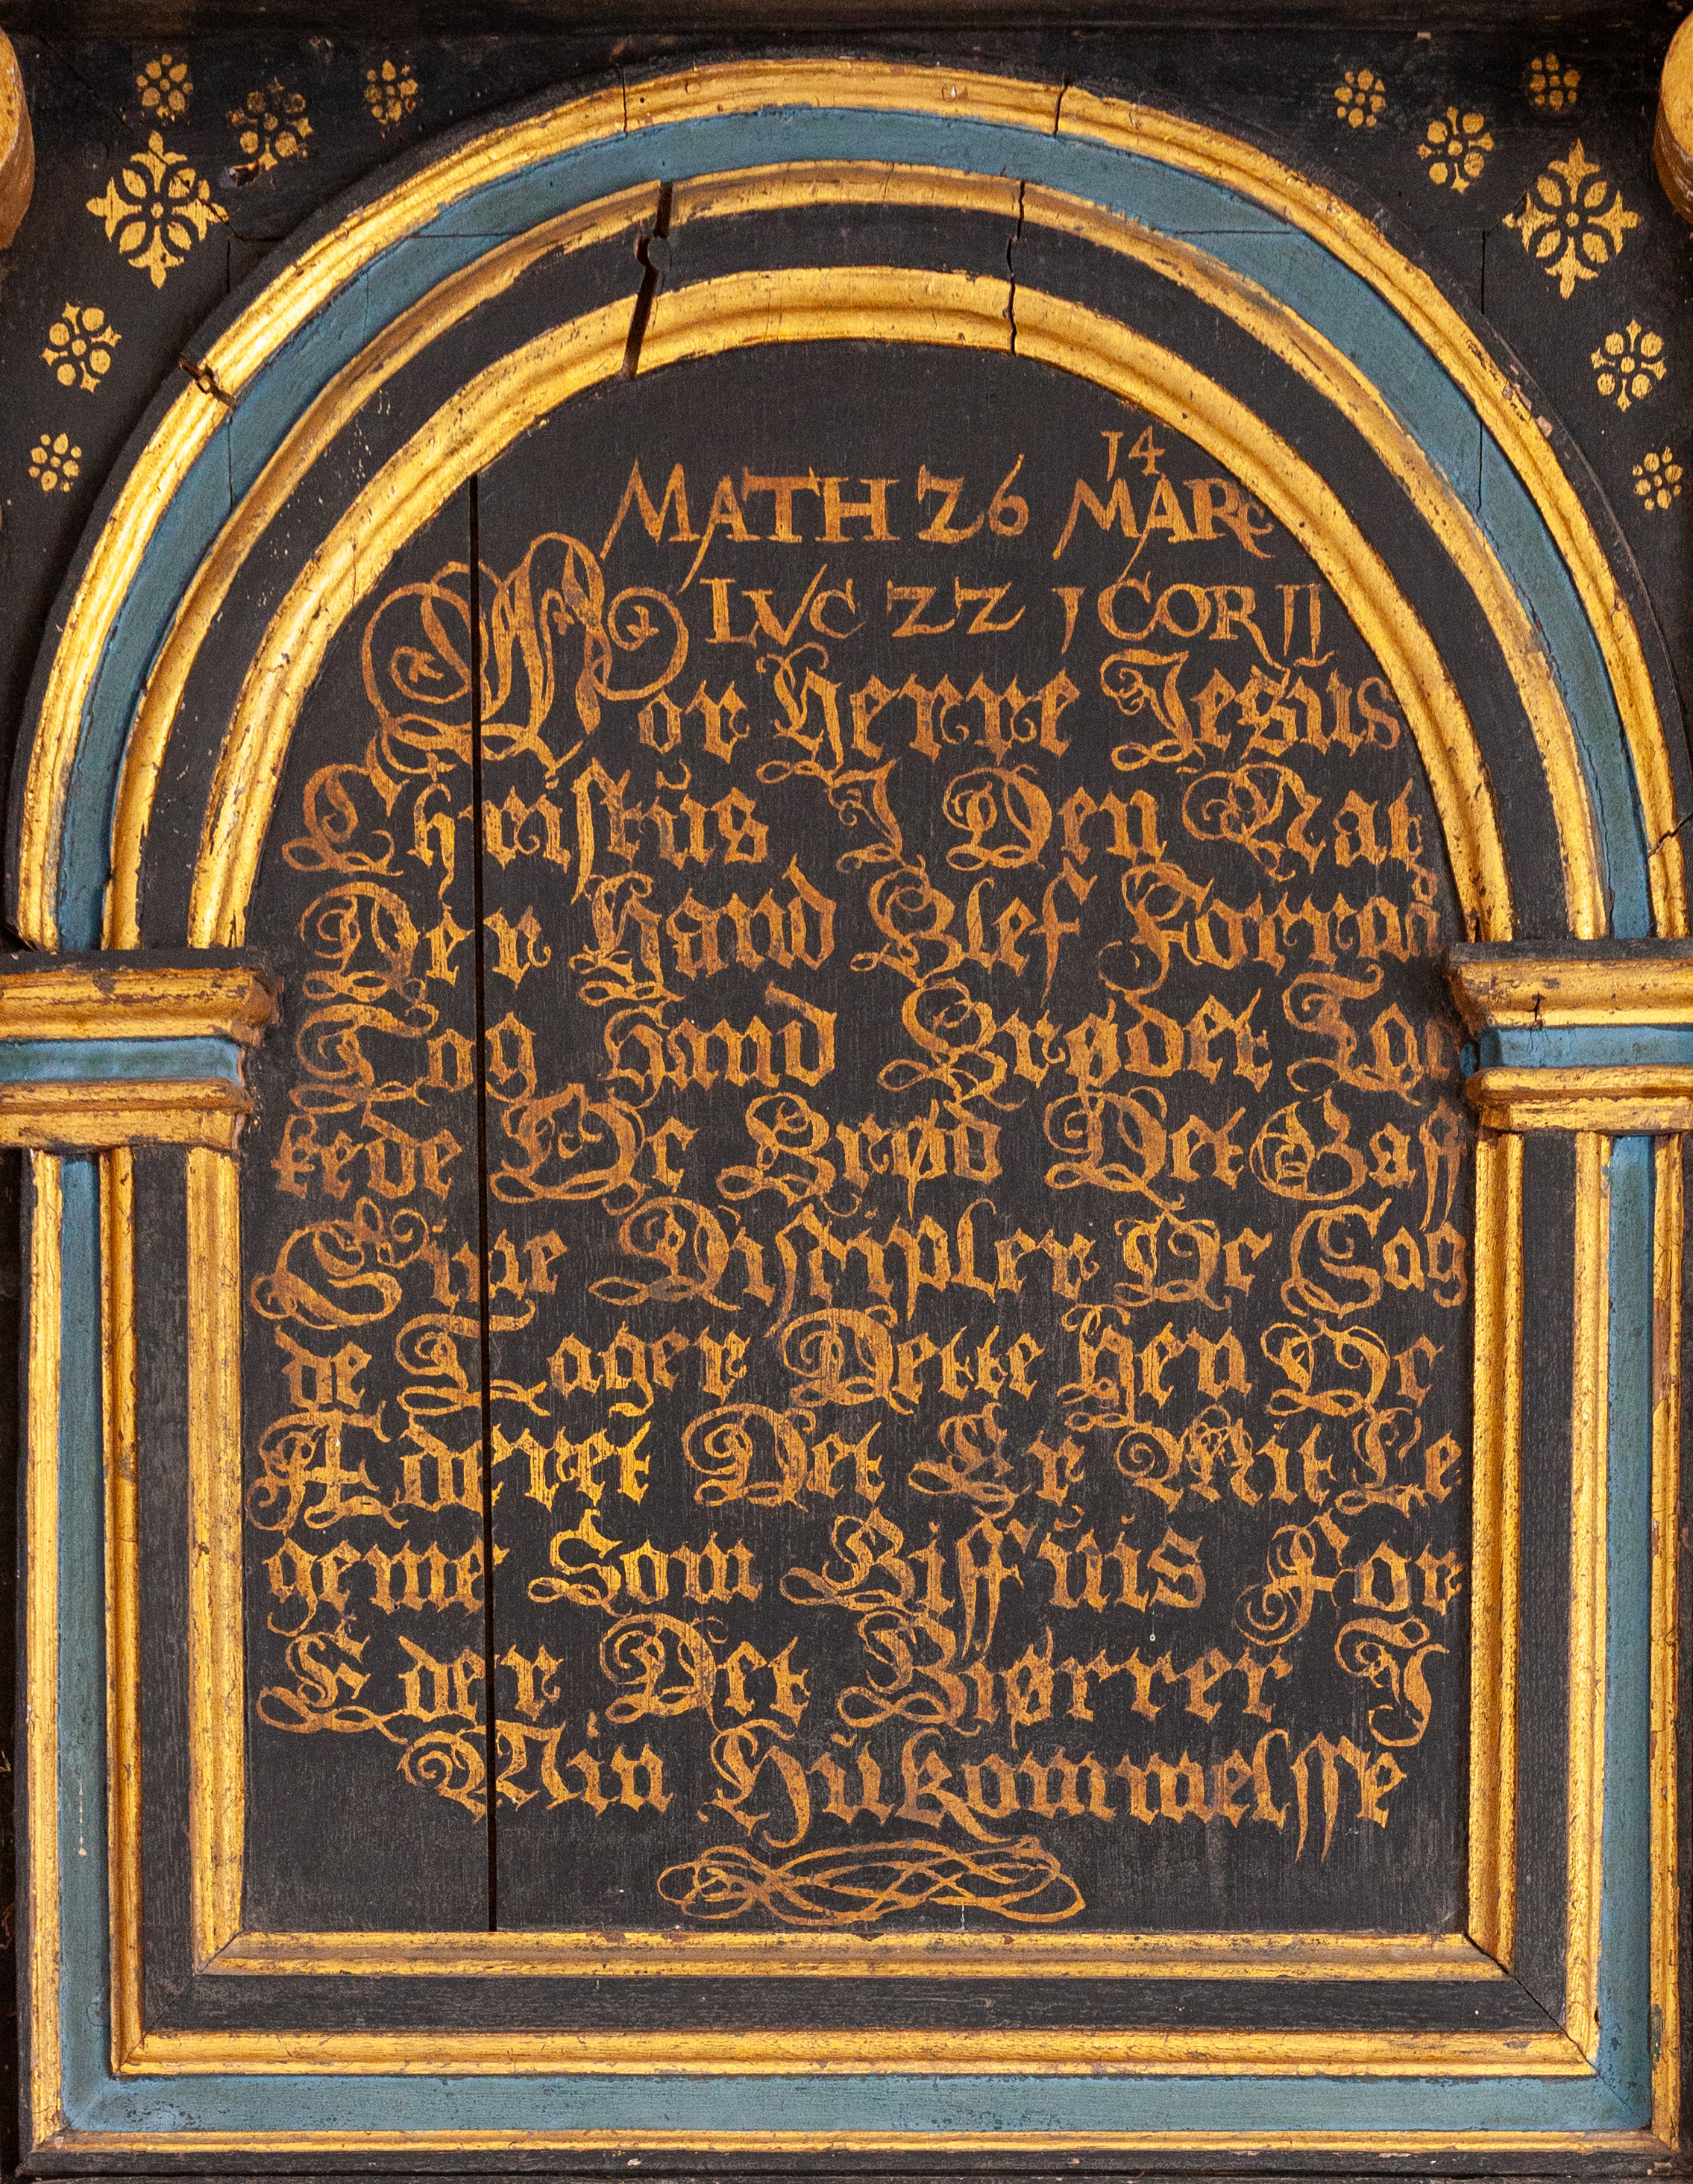 MATH 26 MARC 14
LVC 22 1 COR 11
Vor Herre Jesus
Christus I Den Nat
Der Hand Blef Forrod
Tog Hand Brødet Tac
kede Oc Brød Det Gaff
Sine Discipler Oc Sag
de Tager Dette Hen Oc
Æderet Det Er Mit Le
geme Som Giffuis For
Eder Det Giørrer I
Min Hukommelsse